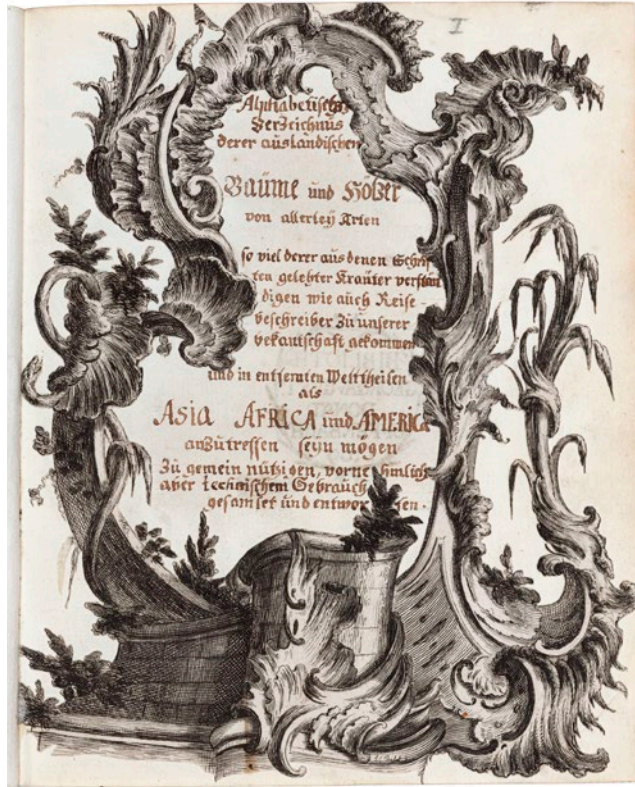 I
Alphabetisches
Verzeichnus
derer ausländischen
Baüme und Hölzer
von allerley Arten
so viel derer aus denen Schrif
ten gelehter Kraüter verstän
digen wie aüch Reise-
beschreiber Zü unserer
bekantschaft gekommen
und in entfernten Welttheilen
als
ASIA AFRICA und AMERICA
anZütreffen seyn mögen
Zü gemein nützigen, vorne hmlich
aber technischem Gebraüch
gesamlet ünd entwor fen.